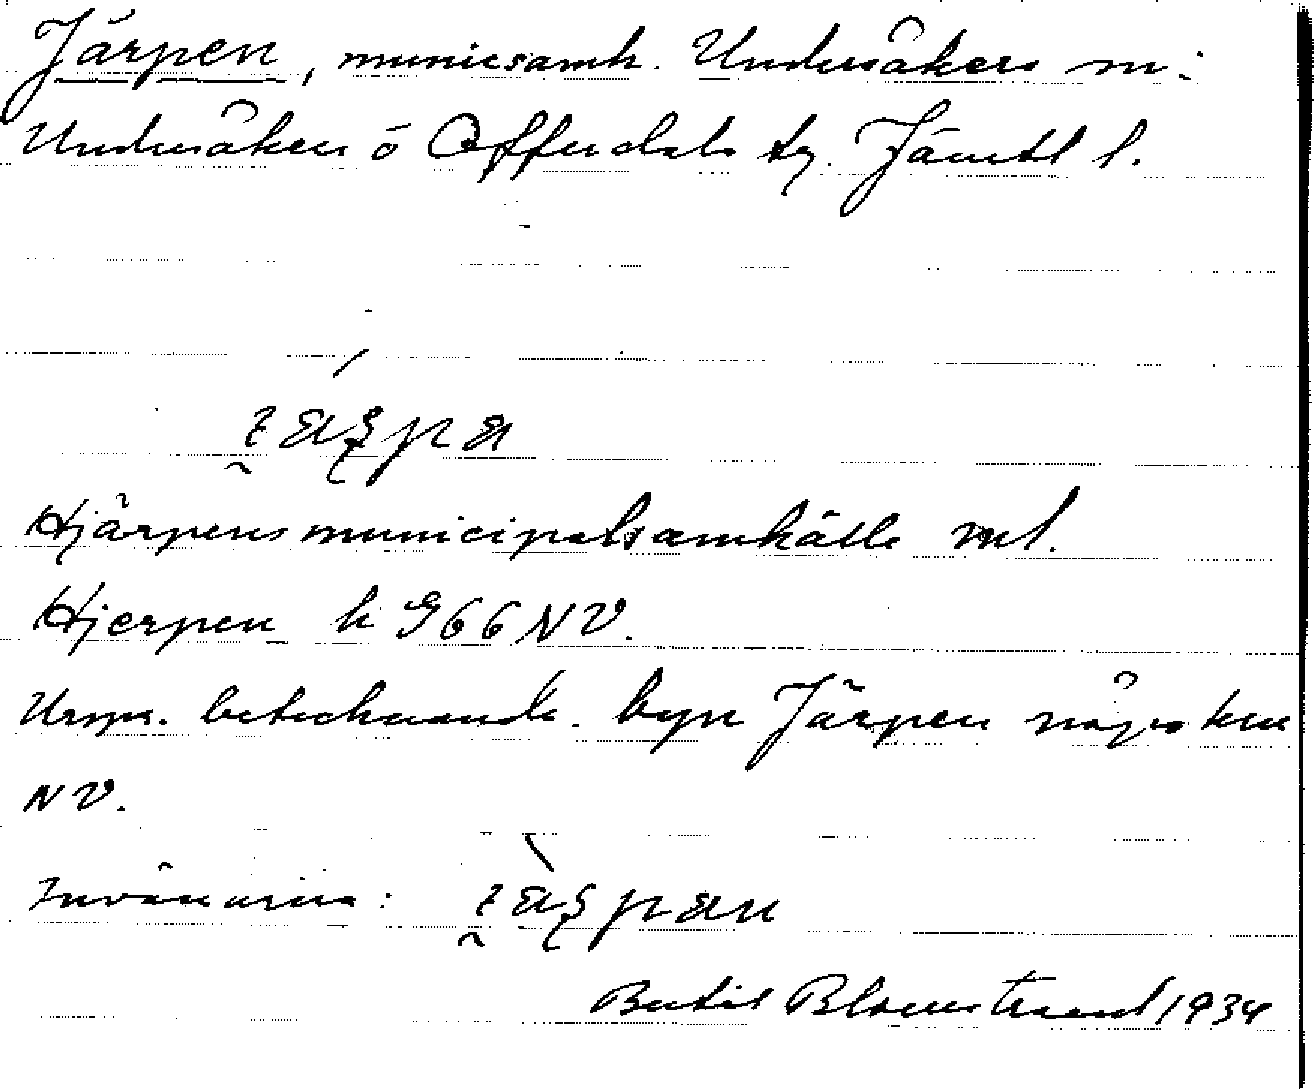 Järpen, municsamh. Undersåkers sn:
Undersåkers o Offerdals tg. Jämtl l.
Hjärpens municipalsamhälle rml.
Hjerpen k G66 NV.
Urspr. betecknande byn Järpen
NV.
Invånarna:
Bertil Blomstrand 1934